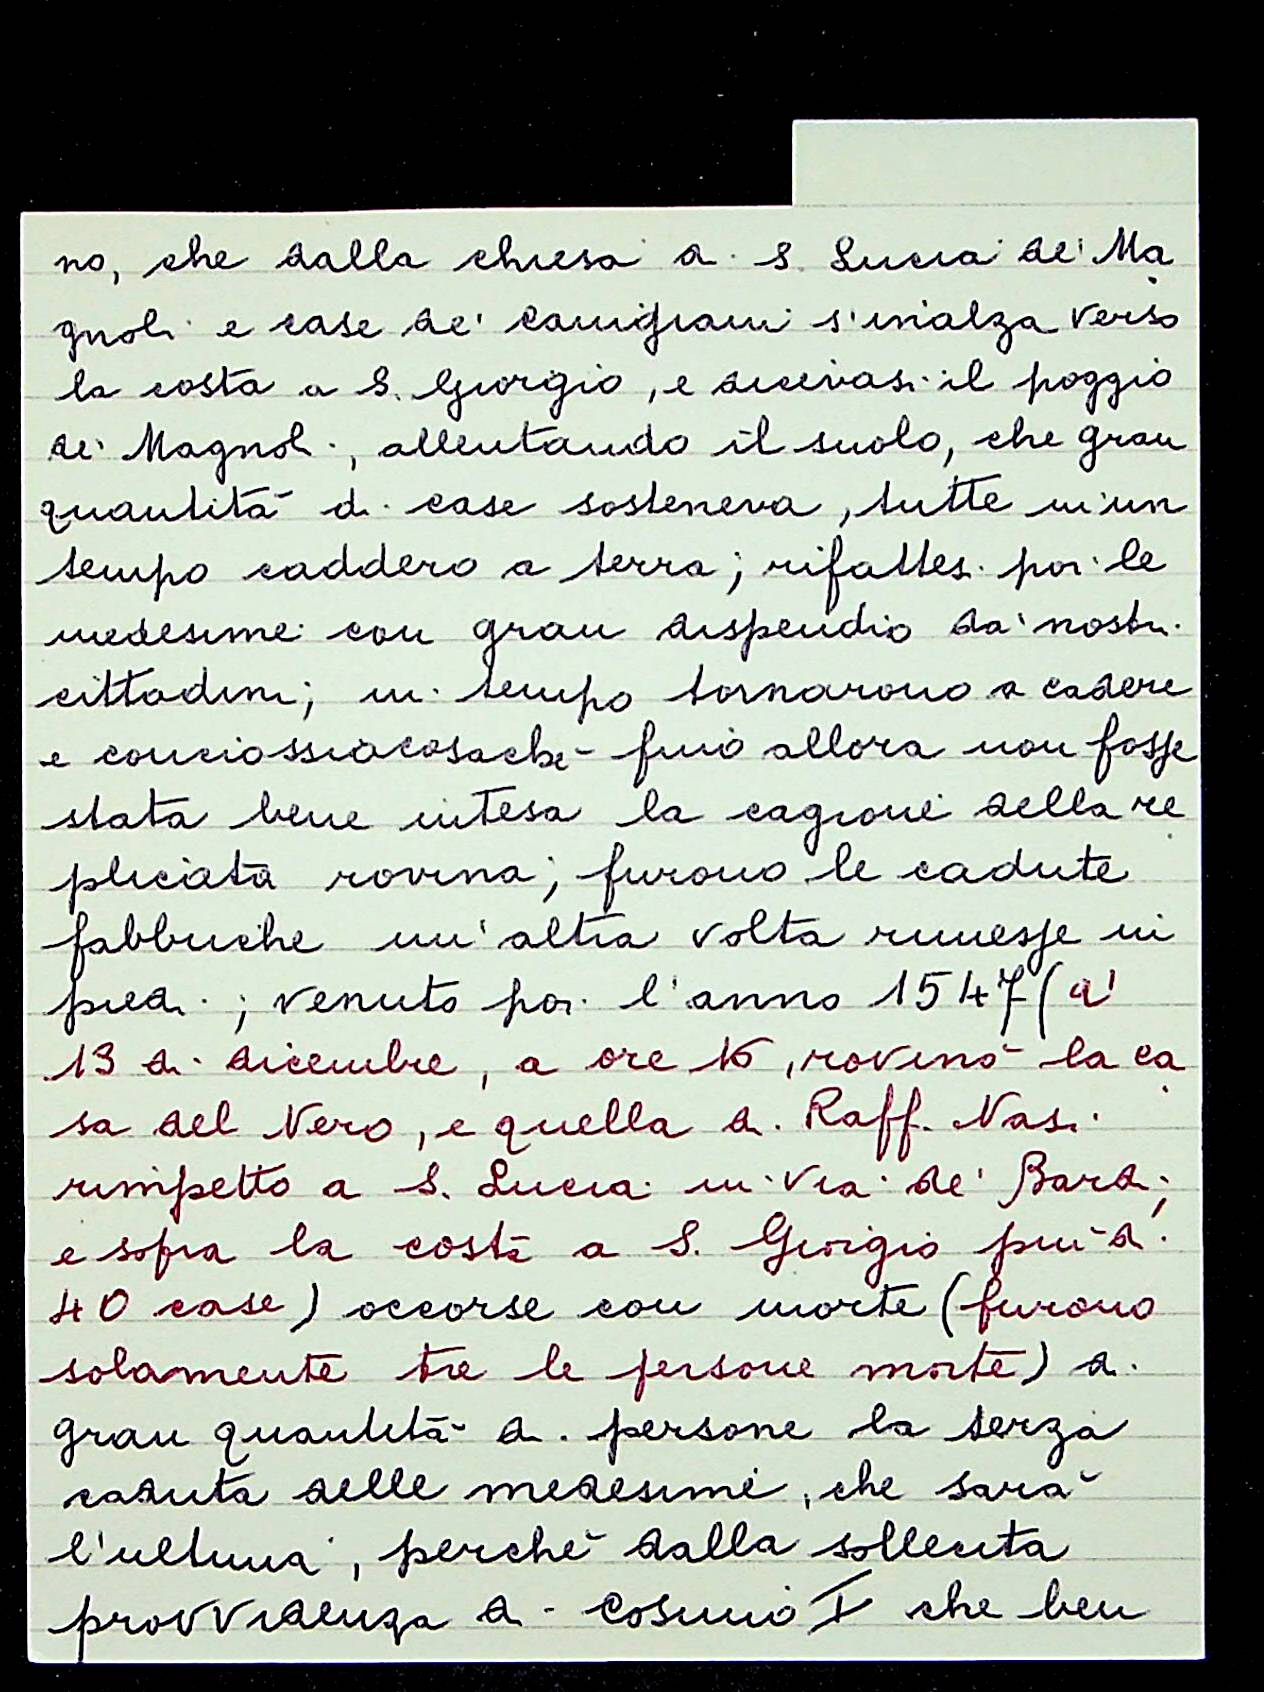 no, che dalla chiesa di S. Lucia de' Ma
gnoli e case de' Canigiani s'inalza verso
la costa a S. Giorgio, e dicevasi il poggio
de' Magnoli, allentando il suolo, che gran
quantità di case sosteneva, tutte in un
tempo caddero a terra; rifattesi poi le
medesime con gran dispendio da' nostri
cittadini; in tempo tornarono a cadere
e conciossiacosachè fino allora non fosse
stata bene intesa la cagione della re
plicata rovina; furono le cadute
fabbriche un'altra volta rimesse in
piedi; venuto poi l'anno 1547 (a'
13 di dicembre, a ore 16, rovinò la ca
sa del Nero, e quella di Raff. Nasi
rimpetto a S. Lucia in via de' Bardi;
e sopra la costa a S. Giorgio più di
40 case) occorse con morte (furono
solamente tre le persone morte) di
gran quantità di persone la terza
caduta delle medesime, che sarà
l'ultima, perchè dalla sollecita
provvidenza di Cosimo I che ben